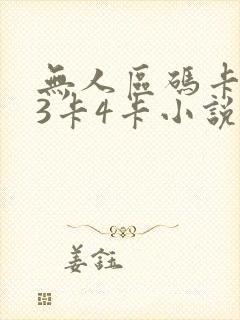 無人區碼卡
3卡4卡小說
姜鈺